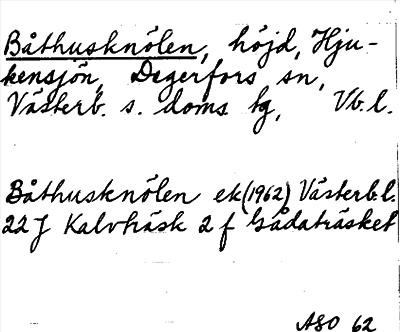 Båthusknölen, höjd, Hju-
kensjön, Degerfors sn,
Västerb. s. doms tg, Vb. l.
Båthusknölen ek (1962) Västerb. l.
22 J Kalvträsk 2 f Gådaträsket
ASO 62